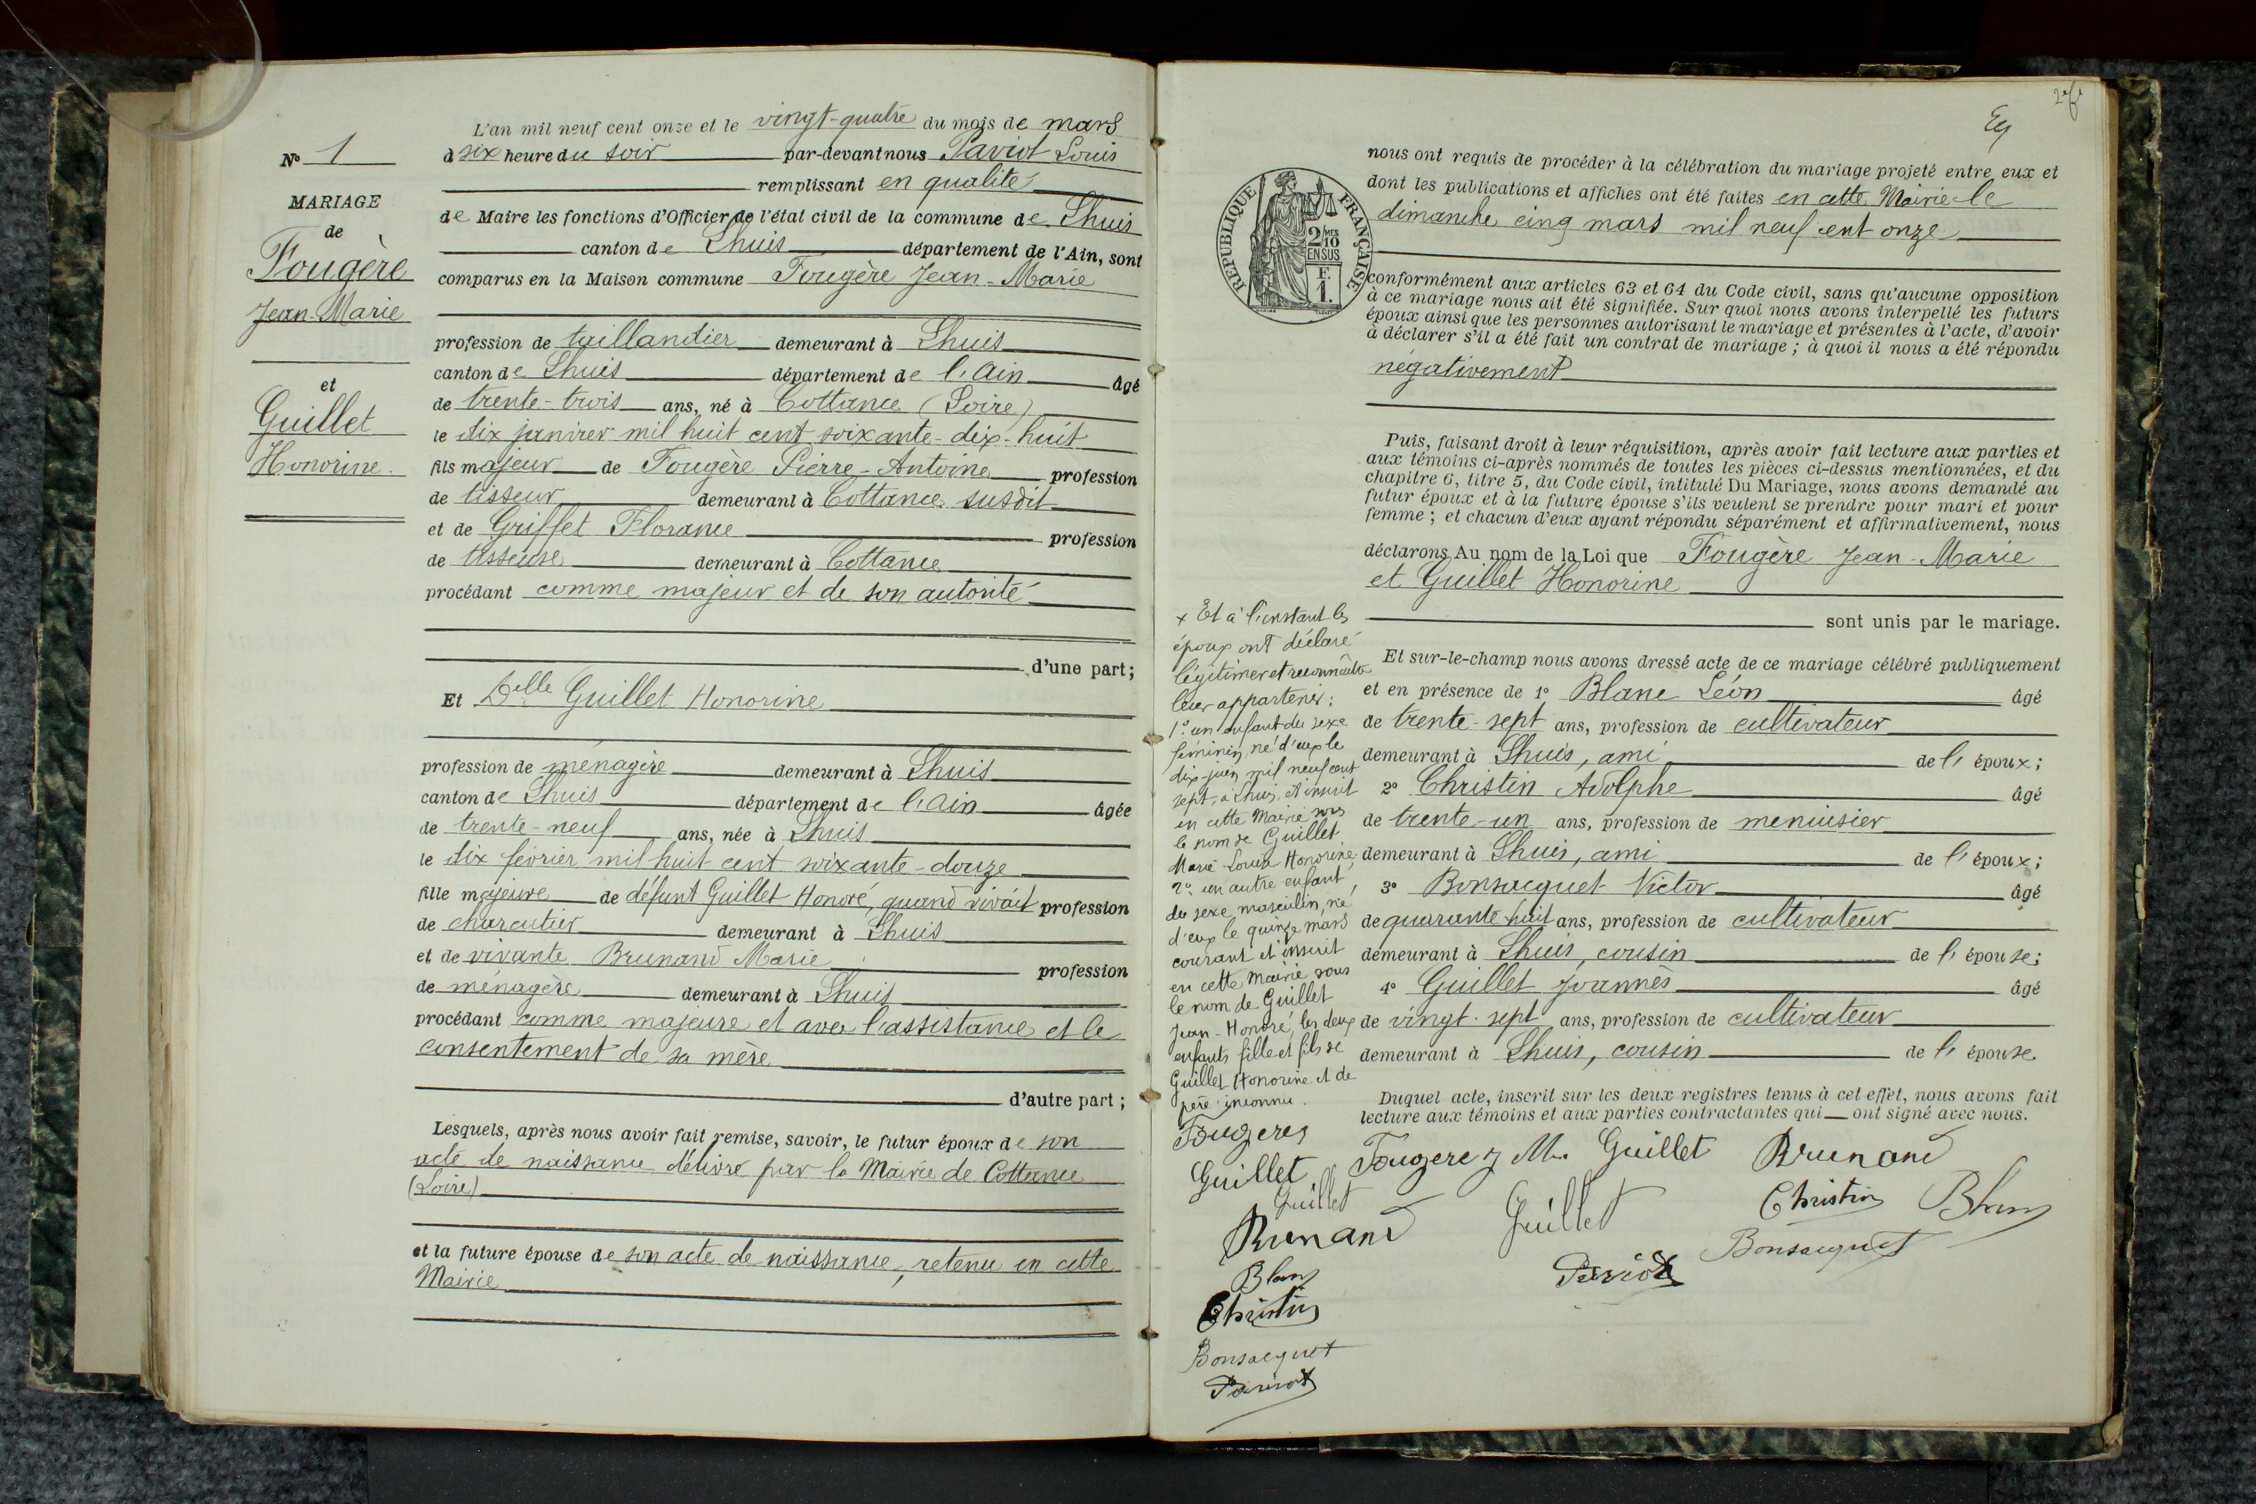 N° 1
MARIAGE
de
Fougère
Jean-Marie
et
Guillet
Honorine.
L'an mil neuf cent onze et le vingt-quatre du mois de mars
à six heure du soir par-devant nous Paviot Louis
remplissant en qualité
de Maire les fonctions d'Officier de l'état civil de la commune de Lhuis
canton de Lhuis département de l'Ain, sont
comparus en la Maison commune Fougère Jean-Marie
profession de taillandier demeurant à Lhuis
canton de Lhuis département de l'Ain âgé
de trente-trois ans, né à Cottance (Loire)
le dix janvier mil huit cent soixante-dix-huit
fils majeur de Fougère Pierre-Antoine profession
de tisseur demeurant à Cottance susdit
et de Griffet Florance profession
de tisseuse demeurant à Cottance
procédant comme majeur et de son autorité
d'une part;
Et Delle Guillet Honorine
profession de ménagère demeurant à Lhuis
canton de Lhuis département de l'Ain âgée
de trente-neuf ans, née à Lhuis
le dix février mil huit cent soixante-douze
fille majeure de défunt Guillet Honoré, quand vivait profession
de charcutier demeurant à Lhuis
et de vivante Brunand Marie profession
de ménagère demeurant à Lhuis
procédant comme majeure et avec l'assistance et le
consentement de sa mère
d'autre part;
Lesquels, après nous avoir fait remise, savoir, le futur époux de son
acte de naissance délivré par la Mairie de Cottance
(Loire)
et la future épouse de son acte de naissance, retenu en cette
Mairie
REPUBLIQUE FRANÇAISE
2/10 MES
EN SUS
F.
1.
nous ont requis de procéder à la célébration du mariage projeté entre eux et
dont les publications et affiches ont été faites en cette Mairie le
dimanche cinq mars mil neuf cent onze
conformément aux articles 63 et 64 du Code civil, sans qu'aucune opposition
à ce mariage nous ait été signifiée. Sur quoi nous avons interpellé les futurs
époux ainsi que les personnes autorisant le mariage et présentes à l'acte, d'avoir
à déclarer s'il a été fait un contrat de mariage; à quoi il nous a été répondu
négativement
Puis, faisant droit à leur réquisition, après avoir fait lecture aux parties et
aux témoins ci-après nommés de toutes les pièces ci-dessus mentionnées, et du
chapitre 6, titre 5, du Code civil, intitulé Du Mariage, nous avons demandé au
futur époux et à la future épouse s'ils veulent se prendre pour mari et pour
femme; et chacun d'eux ayant répondu séparément et affirmativement, nous
déclarons Au nom de la Loi que Fougère Jean-Marie
et Guillet Honorine
sont unis par le mariage.
Et sur-le-champ nous avons dressé acte de ce mariage célébré publiquement
et en présence de 1° Blanc Léon âgé
de trente-sept ans, profession de cultivateur
demeurant à Lhuis, ami de l'époux;
2° Christin Adolphe âgé
de trente-un ans, profession de menuisier
demeurant à Lhuis, ami de l'époux;
3° Bonsacquet Victor âgé
de quarante huit ans, profession de cultivateur
demeurant à Lhuis, cousin de l'épouse;
4° Guillet Joannès âgé
de vingt-sept ans, profession de cultivateur
demeurant à Lhuis, cousin de l'épouse
Duquel acte, inscrit sur les deux registres tenus à cet effet, nous avons fait
lecture aux témoins et aux parties contractantes qui ont signé avec nous.
x Et à l'instant les
époux ont déclaré
légitimer et reconnaître
leur appartenir:
1° un enfant du sexe
féminin, né d'eux le
dix juin mil neuf cent
sept, à Lhuis, et inscrit
en cette Mairie sous
le nom de Guillet
Marie Louise Honorine,
2° un autre enfant,
du sexe masculin, né
d'eux le quinze mars
courant et inscrit
en cette mairie sous
le nom de Guillet
Jean-Honoré, les deux
enfants fille et fils de
Guillet Honorine et de
père inconnu.
Fougere
Guillet
Guillet
Brunand
Blanc
Christin
Bonsacquet
Paviot
Fougere J M. Guillet Brunand
Guillet Christin Blanc
Paviot Bonsacquet